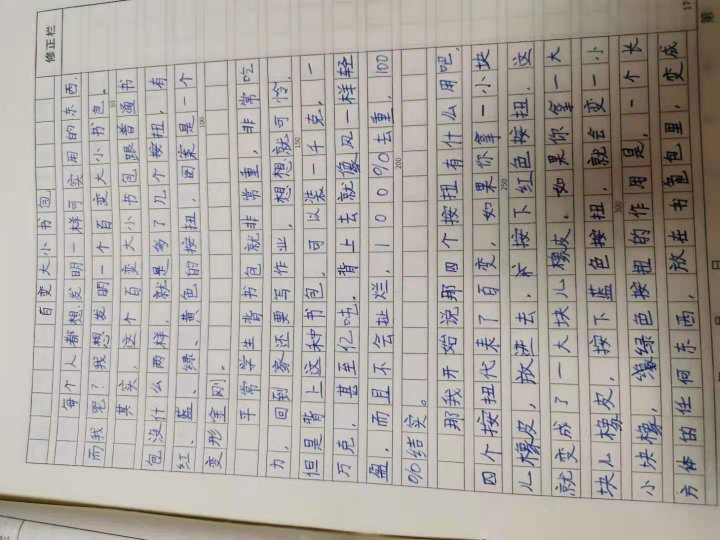 修正栏
百变大小书包
每个人都想发明一样可实用的东西,
而我呢?我想发明一个百变大小书包。
50
其实,这个百变大小书包跟普通书
包没什么两样,就是多了几个按扭,有
红、蓝、绿、黄色的按扭,图案是一个
100
变形金刚。
平常学生背书包就非常重,非常吃
力,回到家还要写作业,想想就可怜,
150
但是背上这种书包,可以装一千克,一
万克,甚至亿吨。背上去就像风一样轻
盈,而且不会扯烂,100%去重,100
200
%结实。
那我开始说那四个按扭有什么用吧,
四个按扭代表了百变,如果你拿一小块
250
儿橡皮,放进去,按下红色按扭,这
就变成了一大块儿橡皮。如果你拿一大
块儿橡皮,按下蓝色按扭,就会变一小
300
小块橡,绿色按扭的作用是,一个长
方体的任何东西,放在书包里,变成
第
17